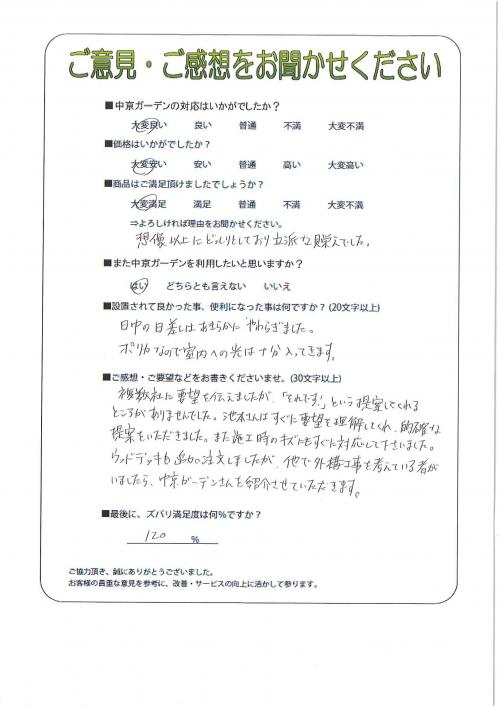 ご意見・ご感想をお聞かせください
■中京ガーデンの対応はいかがでしたか？
大変良い 良い 普通 不満 大変不満
■価格はいかがでしたか？
大変安い 安い 普通 高い 大変高い
■商品はご満足頂けましたでしょうか？
大変満足 満足 普通 不満 大変不満
⇒よろしければ理由をお聞かせください。
想像以上にどっしりとしており立派な賜えでした。
■また中京ガーデンを利用したいと思いますか？
はい どちらとも言えない いいえ
■設置されて良かった事、便利になった事は何ですか？(20文字以上)
日中の日差しはあきらかにやわらぎました。
ポリカなので室内への光は十分入ってきます。
■ご感想・ご要望などをお書きくださいませ。(30文字以上)
複数社に要望を伝えましたが、「それです！」という提案してくれる
ところがありませんでした。池本さんはすぐに要望を理解してくれ、的確な
提案をいただきました。また施工時のキズにもすぐに対応して下さいました。
ウッドデッキも追加注文しましたが、他で外構工事を考えている者が
いましたら、中京ガーデンさんを紹介させていただきます。
■最後に、ズバリ満足度は何%ですか？
120 %
ご協力頂き、誠にありがとうございました。
お客様の貴重な意見を参考に、改善・サービスの向上に活かして参ります。